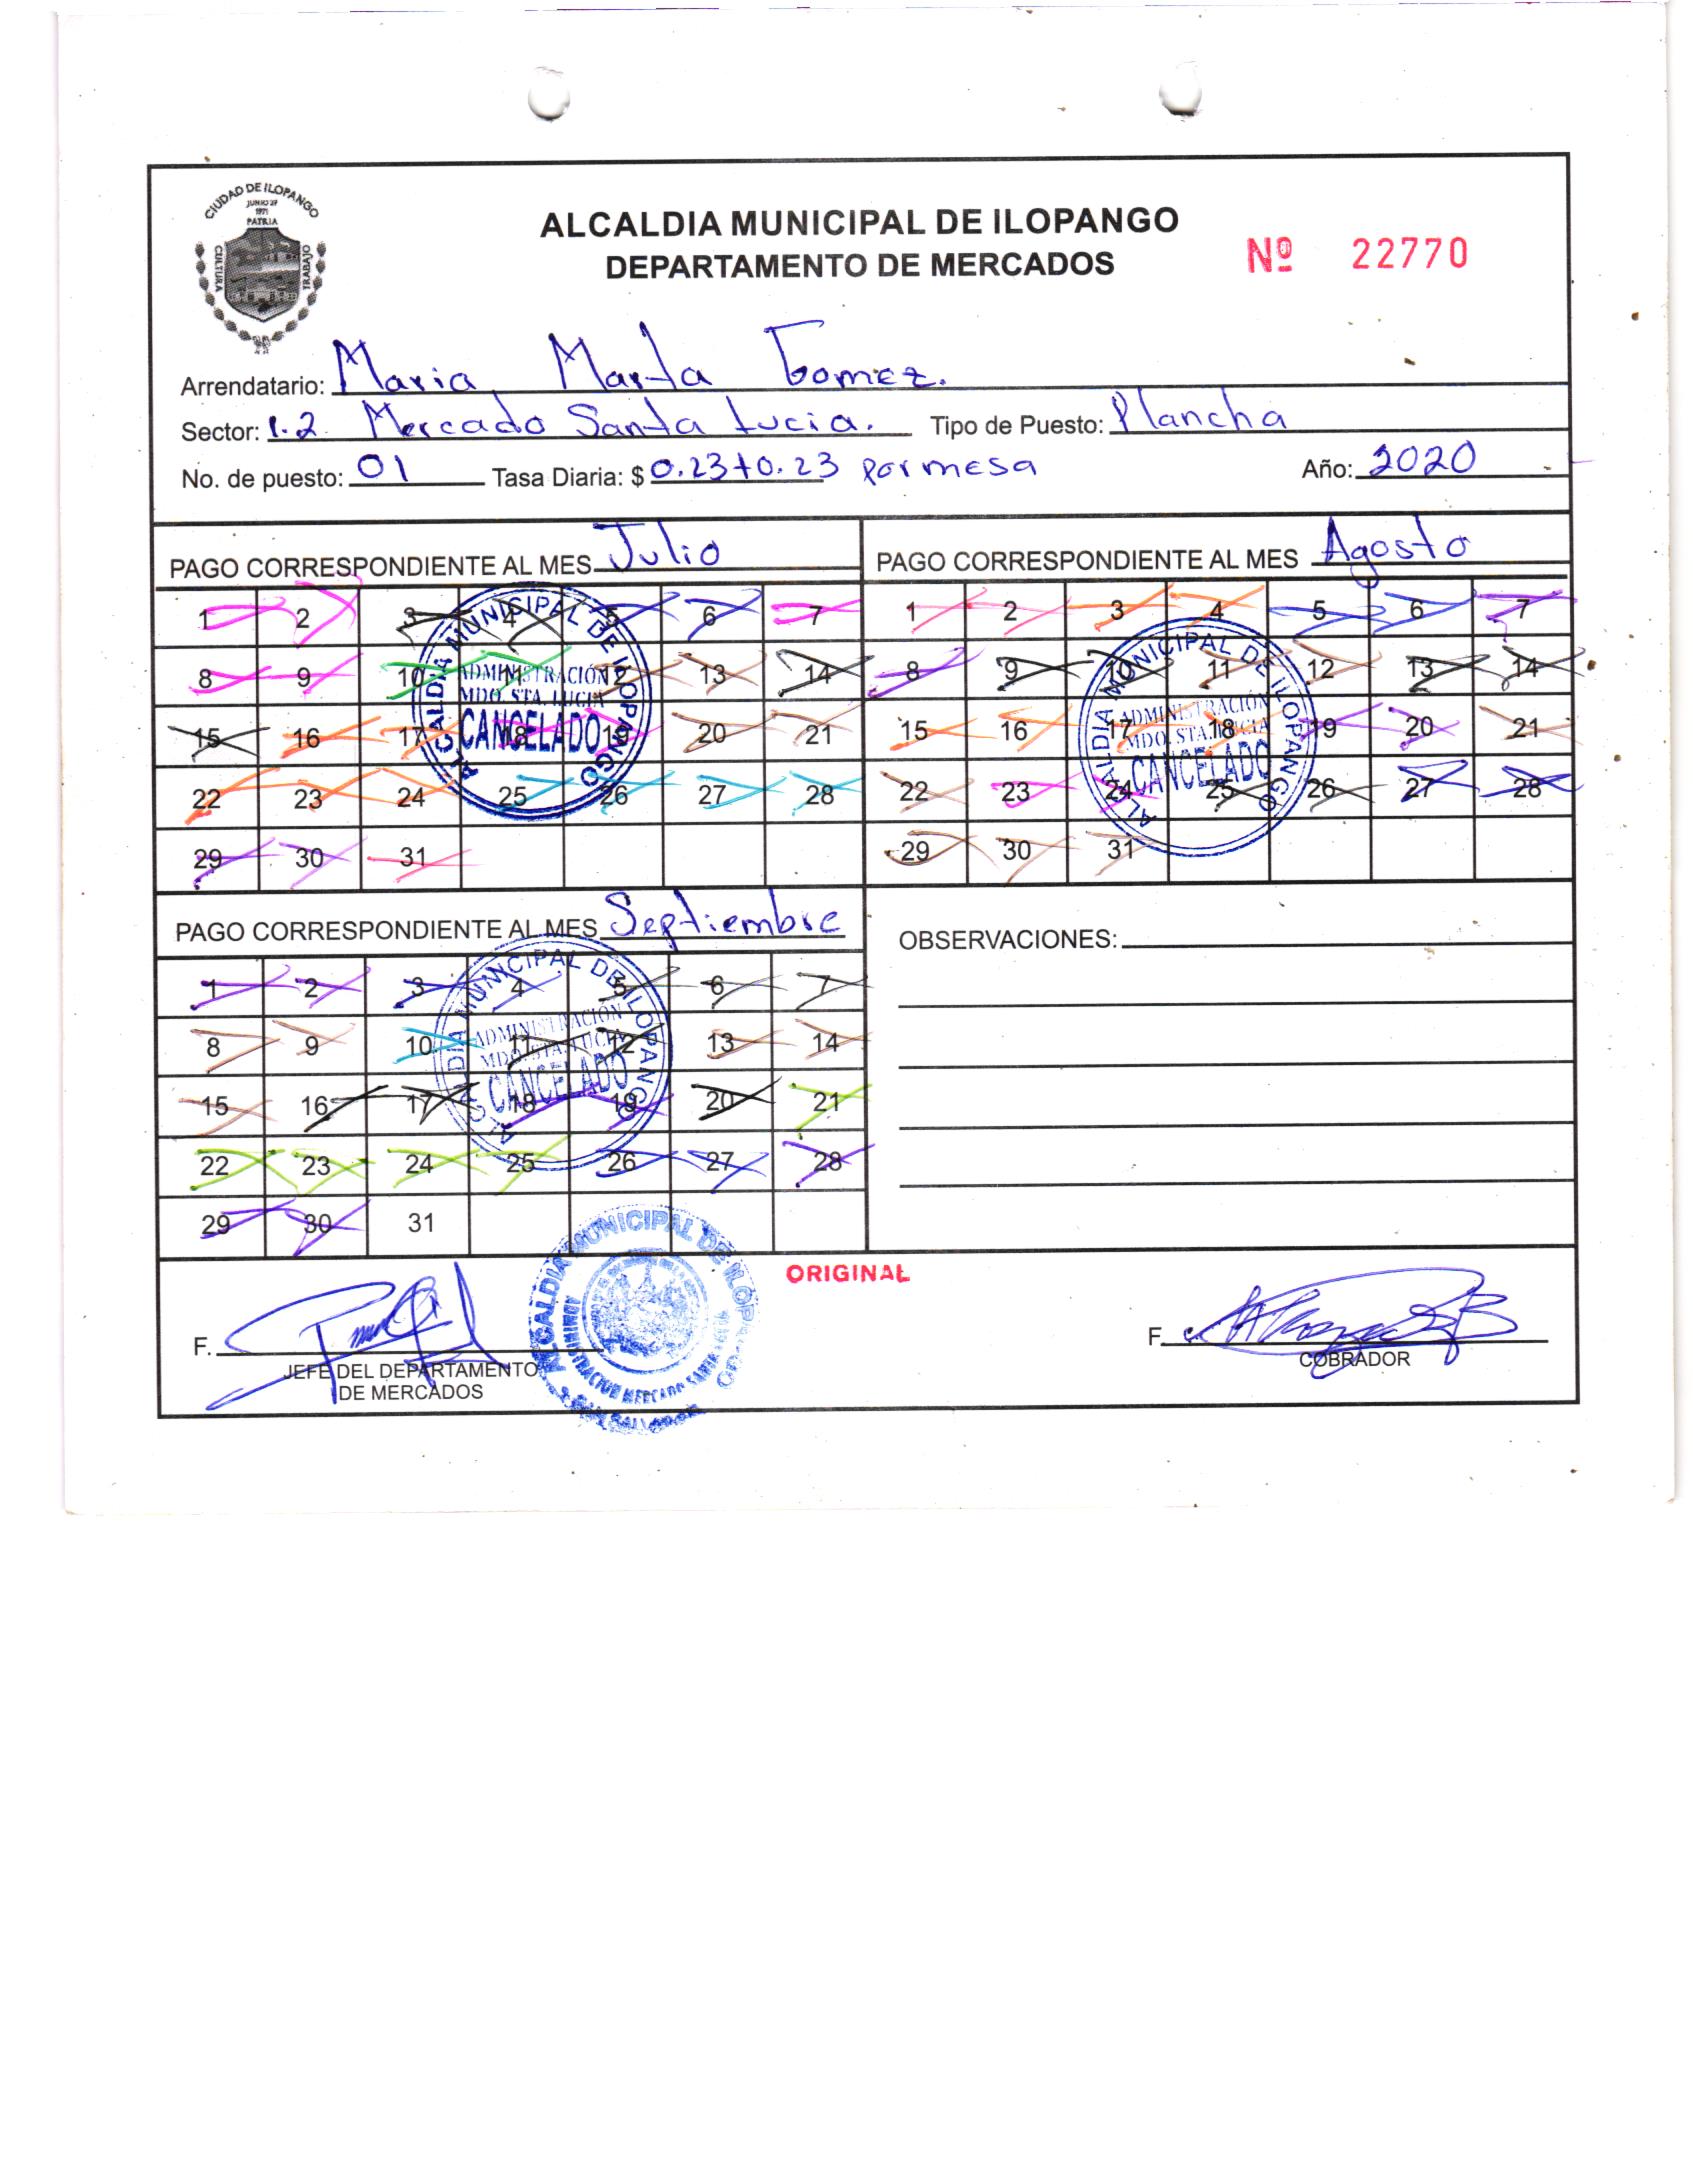 CIUDAD DE ILOPANGO
JUNIO 29
1971
PATRIA
CULTURA
TRABAJO
ALCALDIA MUNICIPAL DE ILOPANGO
DEPARTAMENTO DE MERCADOS
Nº 22770
Arrendatario: Maria Marta Gomez.
Sector: 1.2 Mercado Santa Lucia. Tipo de Puesto: Plancha
No. de puesto: 01 Tasa Diaria: $ 0.23+0.23 por mesa Año: 2020
PAGO CORRESPONDIENTE AL MES Julio
1 2 3 4 5 6 7
8 9 10 11 12 13 14
15 16 17 18 19 20 21
22 23 24 25 26 27 28
29 30 31
ALCALDIA MUNICIPAL DE ILOPANGO
ADMINISTRACIÓN
MDO. STA. LUCIA
CANCELADO
PAGO CORRESPONDIENTE AL MES Agosto
1 2 3 4 5 6 7
8 9 10 11 12 13 14
15 16 17 18 19 20 21
22 23 24 25 26 27 28
29 30 31
ALCALDIA MUNICIPAL DE ILOPANGO
ADMINISTRACIÓN
MDO. STA. LUCIA
CANCELADO
PAGO CORRESPONDIENTE AL MES Septiembre
1 2 3 4 5 6 7
8 9 10 11 12 13 14
15 16 17 18 19 20 21
22 23 24 25 26 27 28
29 30 31
ALCALDIA MUNICIPAL DE ILOPANGO
ADMINISTRACIÓN
MDO. STA. LUCIA
CANCELADO
OBSERVACIONES:
ORIGINAL
F.
JEFE DEL DEPARTAMENTO
DE MERCADOS
ALCALDIA MUNICIPAL DE ILOP
ADMINISTRACION MERCADO SANTA
SAN SALVADOR
F.
COBRADOR